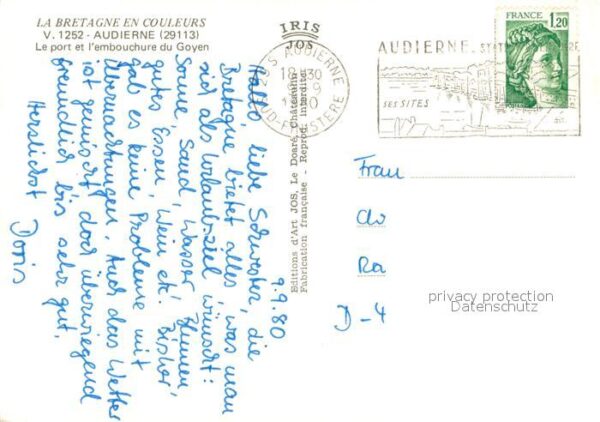 LA BRETAGNE EN COULEURS
V. 1252 - AUDIERNE (29113)
Le port et l'embouchure du Goyen
IRIS
JOS
Editions d'Art JOS, Le Doaré, Châteaulin
Fabrication française - Reprod. interdite
9.9.80
Hallo, liebe Schwester, die
Bretagne bietet alles, was man
sich als Urlaubsziel wünscht:
Sonne, Sand, Wasser, Blumen,
gutes Essen, Wein etc! Bisher
gab es keine Probleme mit
Übernachtungen. Auch das Wetter
ist gemischt doch überwiegend
freundlich bis sehr gut.
Herzlichst
Doris
AUDIERNE
16-30
9
SUD-FINISTERE
AUDIERNE
SES SITES
FRANCE
1,20
Frau
Ra
D-4
privacy protection
Datenschutz